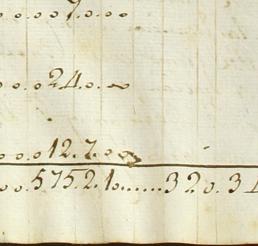 ...7...
...24...
...12.7...
...575.2.1......320.34